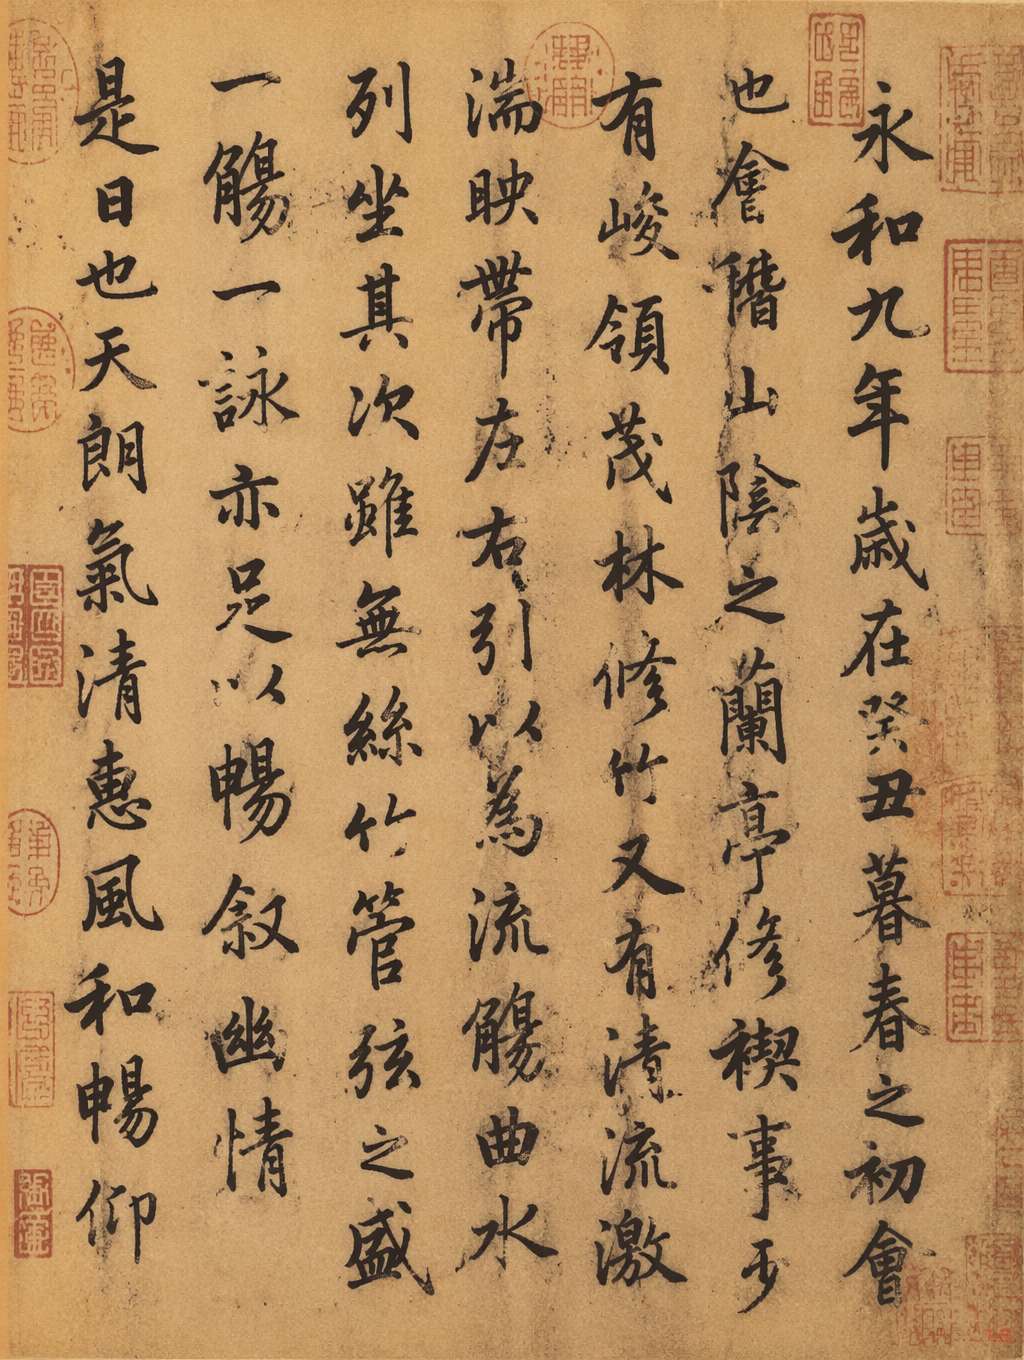 永和九年歲在癸丑暮春之初會
也會稽山陰之蘭亭修禊事于
有峻領茂林修竹又有清流激
湍映帶左右引以為流觴曲水
列坐其次雖無絲竹管弦之盛
一觴一詠亦足以暢敘幽情
是日也天朗氣清惠風和暢仰